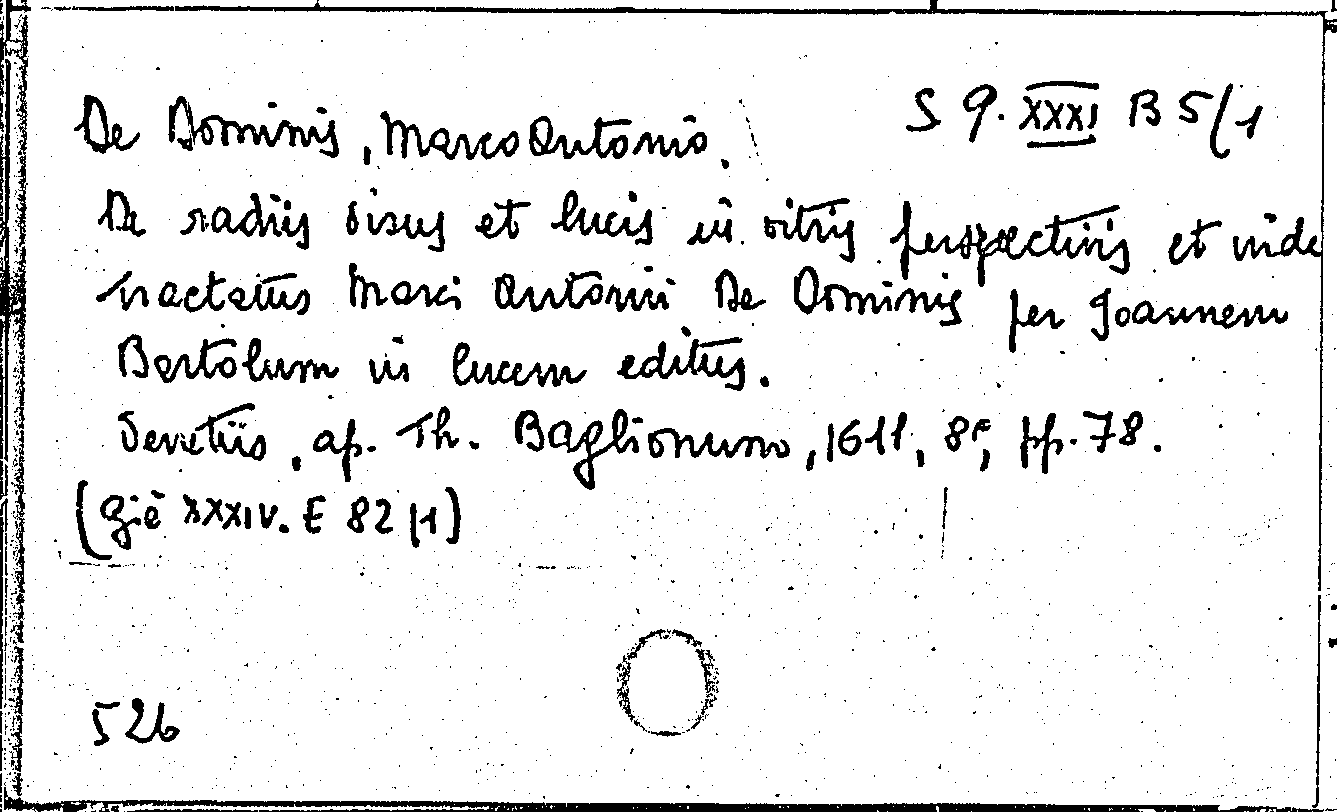 De Dominis, Marco Antonio. S Q. XXXI B 5/1
De radiis visus et lucis in vitris perspectivis et iride
tractatus Marci Antonii De Dominis per Joannem
Bartolum in lucem editus.
Venetiis, ap. Th. Baglionum, 1611, 8º, pp. 78.
(già XXXIV. E 82/1)
526